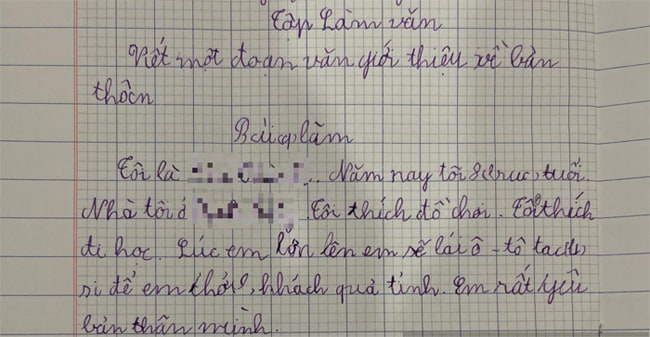 Tập Làm văn
Viết một đoạn văn giới thiệu về bản
thân
Bài làm
Tôi là .. Năm nay tôi 8 tuổi.
Nhà tôi ở Tôi thích đồ chơi. Tôi thích
đi học. Lúc em lớn lên em sẽ lái ô-tô tắc
si để em chở khách quả tỉnh. Em rất yêu
bản thân mình.